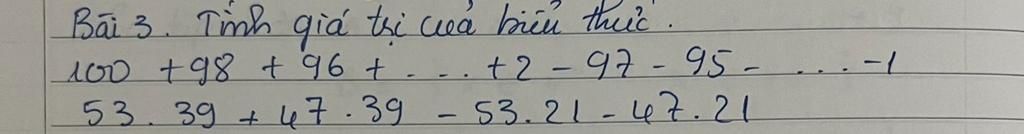 Bài 3. Tính giá trị của biểu thức.
100 + 98 + 96 + .... + 2 - 97 - 95 - .... - 1
53. 39 + 47. 39 - 53. 21 - 47. 21